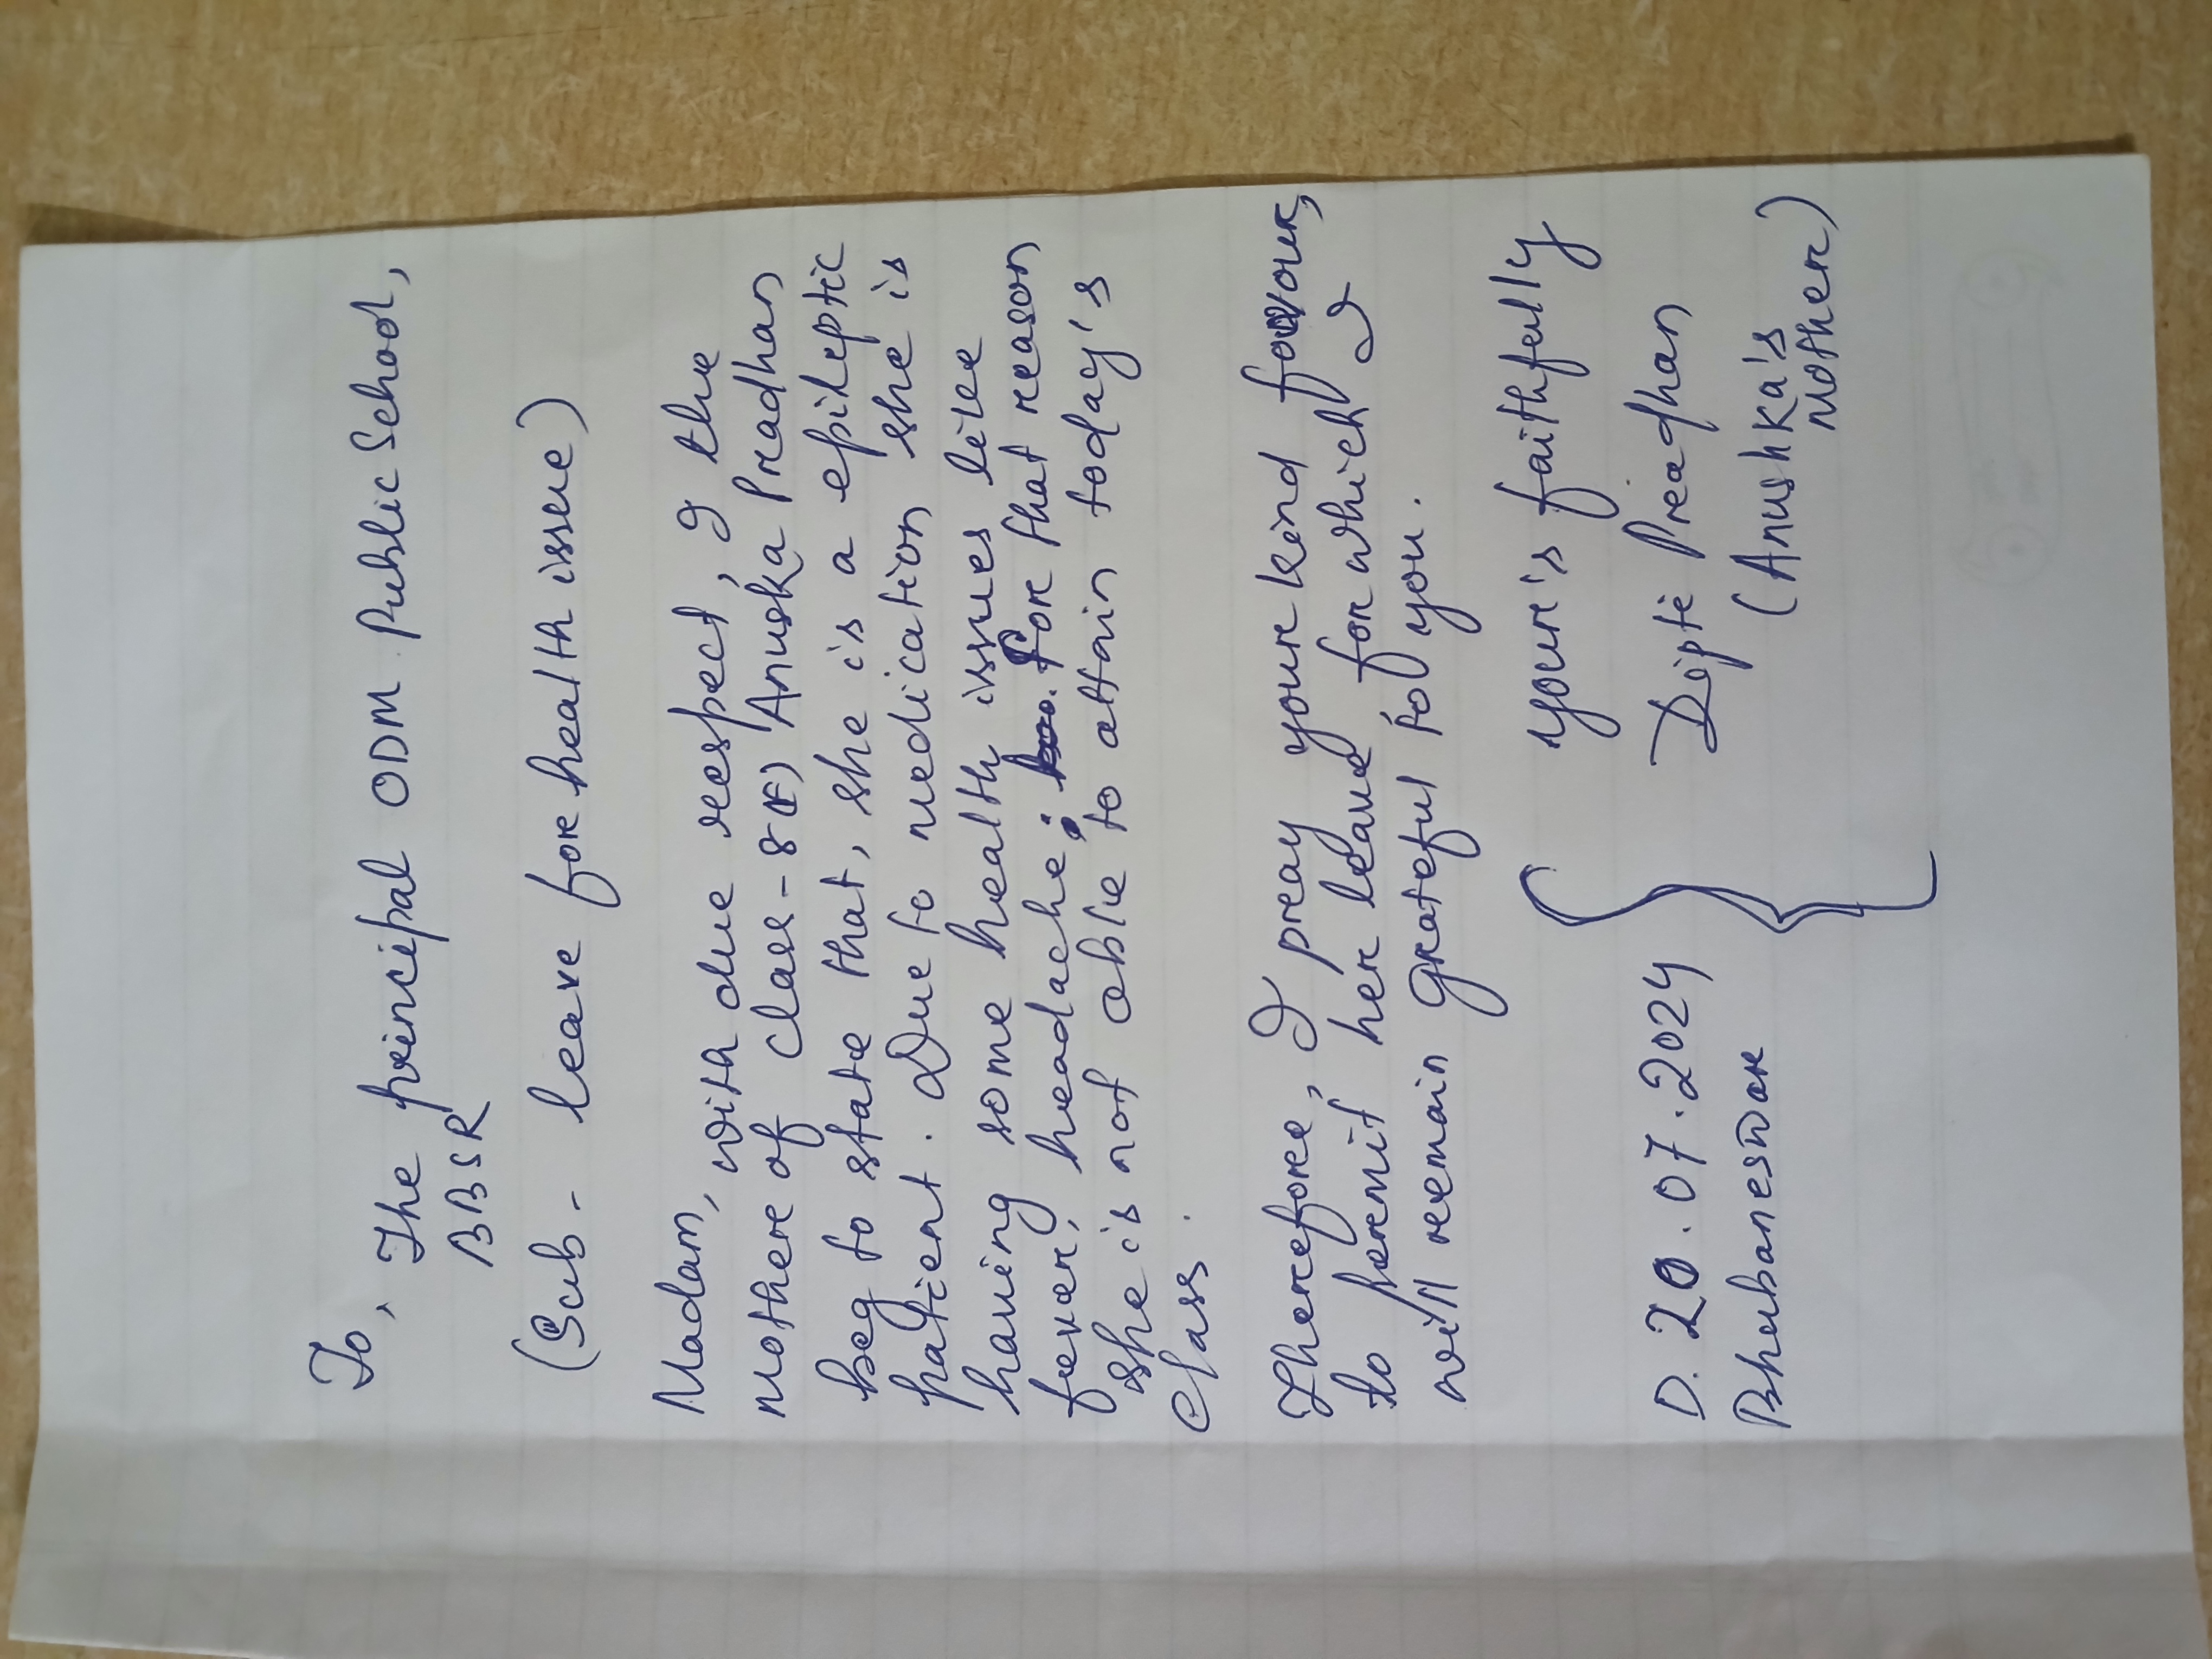 To,
The principal ODM Public School,
BBSR
(Sub - leave for health issue)
Madam, with due respect, I the
mother of class - 8(F) Anuska Pradhan
beg to state that, she is a epileptic
patient. Due to medication she is
having some health issues like
fever, headache; for that reason
she is not able to attain today's
class.
Therefore, I pray your kind favour,
to permit her leave for which I
will remain grateful to you.
your's faithfully
Dipti Pradhan
(Anushka's
Mother)
D. 20.07.2024
Bhubaneswar